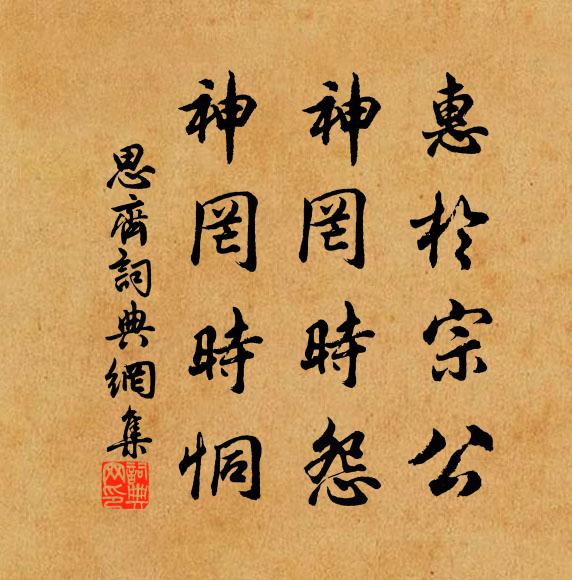 惠於宗公
神罔時怨
神罔時恫
思齊詞典網集
詞典網印